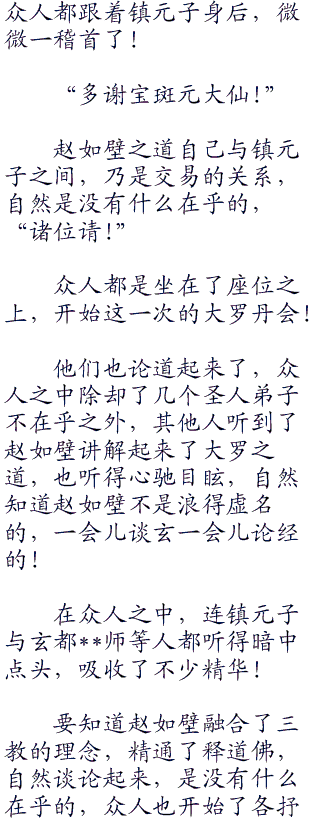 众人都跟着镇元子身后，微
微一稽首了！
“多谢宝斑元大仙！”
赵如壁之道自己与镇元
子之间，乃是交易的关系，
自然是没有什么在乎的，
“诸位请！”
众人都是坐在了座位之
上，开始这一次的大罗丹会！
他们也论道起来了，众
人之中除却了几个圣人弟子
不在乎之外，其他人听到了
赵如壁讲解起来了大罗之
道，也听得心驰目眩，自然
知道赵如壁不是浪得虚名
的，一会儿谈玄一会儿论经
的！
在众人之中，连镇元子
与玄都**师等人都听得暗中
点头，吸收了不少精华！
要知道赵如壁融合了三
教的理念，精通了释道佛，
自然谈论起来，是没有什么
在乎的，众人也开始了各抒